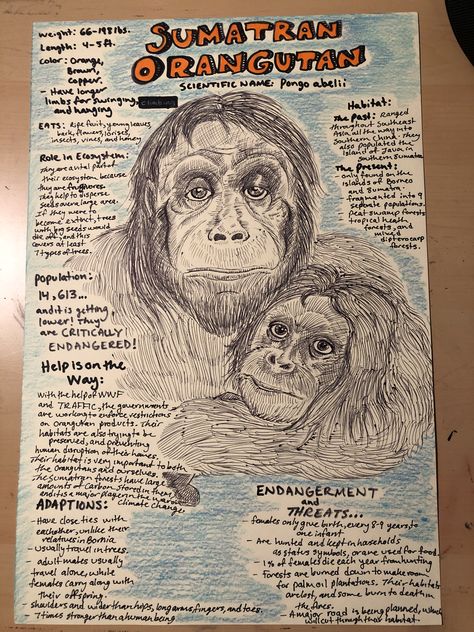 SUMATRAN
ORANGUTAN
SCIENTIFIC NAME: Pongo abelii
Weight: 66-198 lbs.
Length: 4-5 ft.
Color: Orange,
Brown,
Copper.
- Have longer
limbs for swinging, climbing,
and hanging
EATS: ripe fruit, young leaves,
bark, flowers, lorises,
insects, vines, and honey
Role in Ecosystem:
They are a vital part of
their ecosystem because
they are frugivores.
They help to disperse
seeds over a large area.
If they were to
become extinct, trees
with big seeds would
die off, and this
covers at least
7 types of trees.
Population:
14,613...
and it is getting
lower! They
are CRITICALLY
ENDANGERED!
Help is on the
Way:
With the help of WWF
and TRAFFIC, the governments
are working to enforce restrictions
on orangutan products. Their
habitats are also trying to be
preserved, and preventing
human disruption of their homes.
Their habitat is very important to both
the Orangutans and ourselves.
The Sumatran forests have large
amounts of Carbon stored in them,
and it is a major player in the
Climate Change
ADAPTIONS:
- Have close ties with
eachother, unlike their
relatives in Bornia
- Usually travel in trees.
- adult males usually
travel alone, while
females carry along with
their offspring.
- Shoulders and wider than hips, long arms, fingers, and toes.
- 7 times stronger than a human being
Habitat:
The Past: Ranged
throughout Southeast
Asia, all the way into
Southern China. They
also populated the
Island of Java, in
Southern Sumatra.
The Present:
only found on the
islands of Borneo
and Sumatra.
fragmented into 9
separate populations.
Peat swamp forests
tropical heath
forests, and
mixed
dipterocarp
forests.
ENDANGERMENT
and
THREATS...
- females only give birth, every 8-9 years to
one infant
- Are hunted and kept in households
as status symbols, or are used for food.
- 1% of females die each year from hunting
- Forests are burned down to make room
for palm oil plantations. Their habitats
are lost, and some burn to death in
the fires.
- A major road is being planned, which
will cut through their habitat.